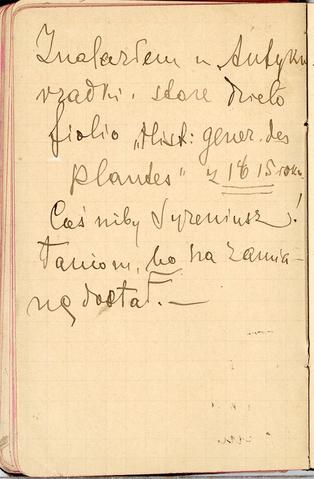 Znalazłem u Antykw
rzadki. stare dzieło
fiolio „Hist: gener. des
Plandes" z 1615 roku
Coś niby Syreniusz!
Taniom, bo na zamia-
nę dostał. —